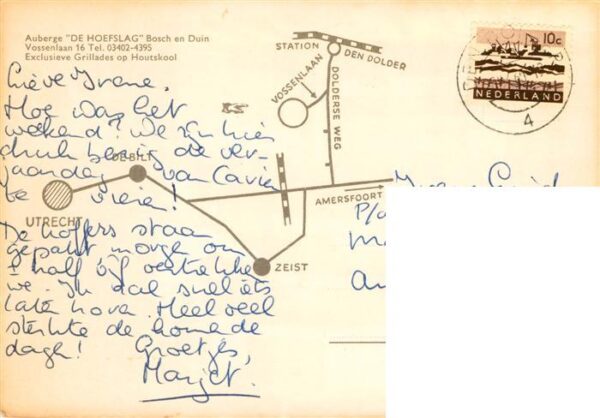 Auberge "DE HOEFSLAG" Bosch en Duin
Vossenlaan 16 Tel. 03402-4395
Exclusieve Grillades op Houtskool
STATION
DEN DOLDER
VOSSENLAAN
DOLDERSE WEG
DE BILT
UTRECHT
AMERSFOORT
ZEIST
10c
NEDERLAND
4
Lieve Yvone,
Hoe was het
weekend? We zijn hier
druk bezig de ver-
jaardag van
te vieren!
De koffers staan
gepakt morgen om
± half bij vertrekken
we. Ik zal snel iets
laten horen. Heel veel
sterkte de komende
dagen!
Groetjes,
Marjet.
P/a